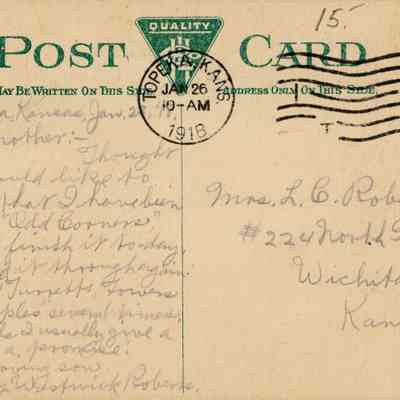 15.
QUALITY
POST CARD
MAY BE WRITTEN ON THIS SIDE
ADDRESS ONLY ON THIS SIDE
TOPEKA, KANS.
JAN 26
10-AM
1918
T
a, Kansas, Jan. 2
mother:-
Thought
ould like to
that I have been
"Odd Corners",
finish it to-day.
it through again.
Towers
ples several times,
I usually give a
a promise.
son
Westwick Roberts.
Mrs. L. C. Robe
#224 North
Wichita
Kan